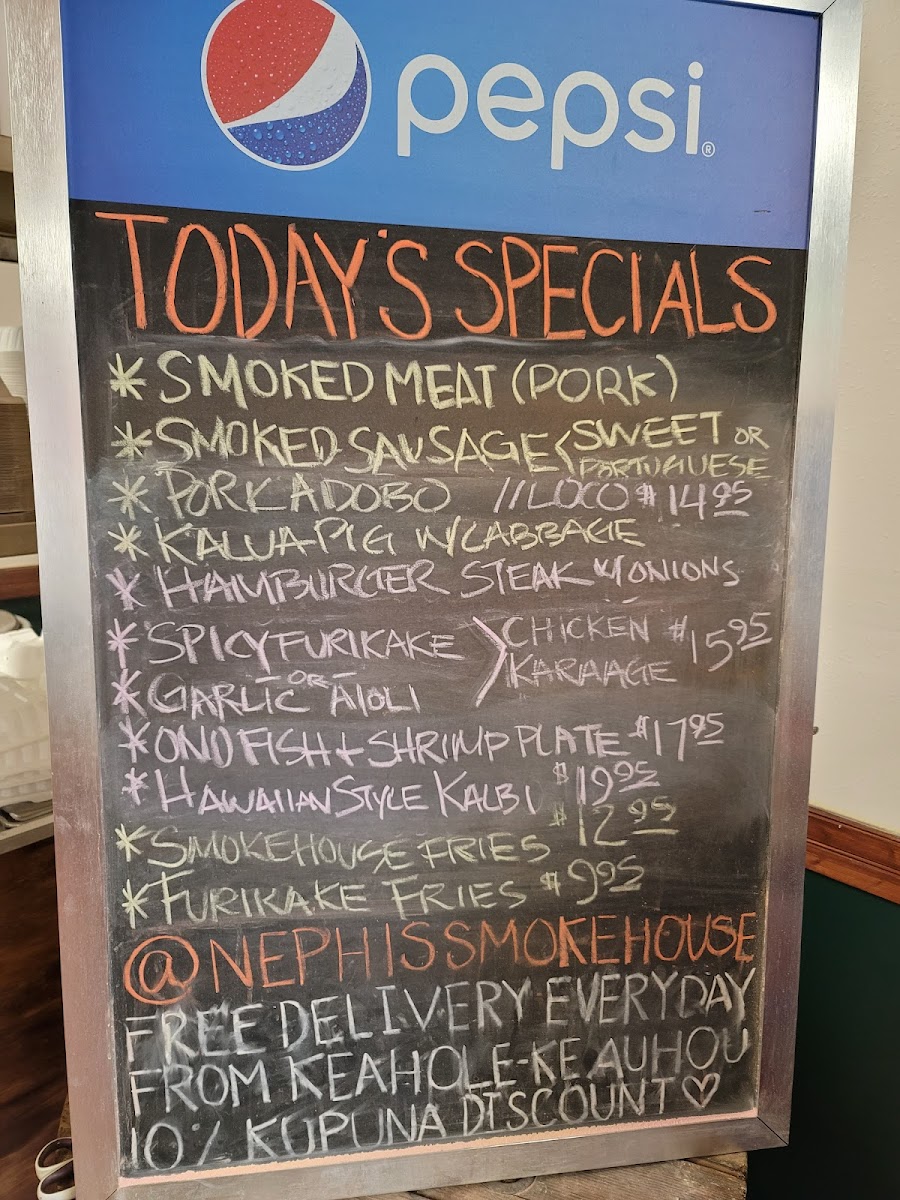 pepsi®
TODAY'S SPECIALS
* SMOKED MEAT (PORK)
* SMOKED SAUSAGE < SWEET OR PORTUGUESE
* PORK ADOBO //LOCO $14.95
* KALUA PIG W/CABBAGE
* HAMBURGER STEAK W/ONIONS
* SPICY FURIKAKE > CHICKEN $15.95
OR KARAAGE
* GARLIC AIOLI
* ONO FISH + SHRIMP PLATE $17.95
* HAWAIIAN STYLE KALBI $19.95
* SMOKEHOUSE FRIES $12.95
* FURIKAKE FRIES $9.95
@NEPHISSMOKEHOUSE
FREE DELIVERY EVERYDAY
FROM KEAHOLE-KEAUHOU
10% KUPUNA DISCOUNT ♡